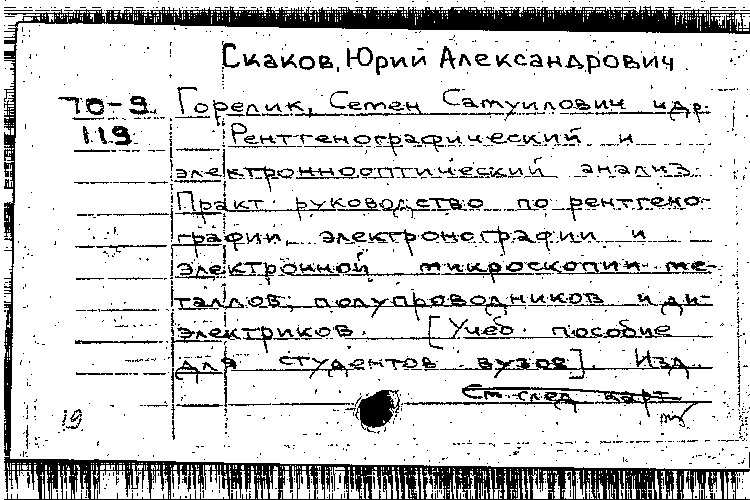 Скаков, Юрий Александрович
70-9 Горелик, Семен Самуилович и др.
119 Рентгенографический и
электроннооптический анализ.
Практ. руководство по рентгено-
графии, электронографии и
электронной микроскопии ме-
таллов, полупроводников и ди-
электриков. [Учеб. пособие
для студентов вузов]. Изд.
См. след. карт.
19